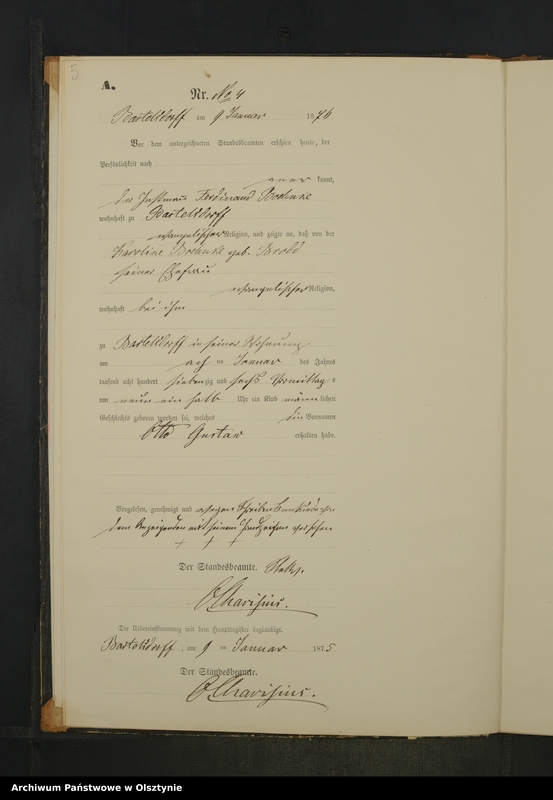 5
A.
Nr. No 4
Bartelsdorff am 9 Januar 1876
Vor dem unterzeichneten Standesbeamten erschien heute, der
Persönlichkeit nach
kannt,
der Instmann Ferdinand Boehnke
wohnhaft zu Bartelsdorff
evangelischer Religion, und zeigte an, daß von der
Karoline Boehnke geb. Brodd
seiner Ehefrau
evangelischer Religion,
wohnhaft bei ihm
zu Bartelsdorff in seiner Wohnung
am ach ten Januar des Jahres
tausend acht hundert siebenzig und sechs Vormittag s
um neun ein halb Uhr ein Kind männlichen
Geschlechts geboren worden sei, welches die Vornamen
Otto Gustav erhalten habe.
Vorgelesen, genehmigt und wegen Schreibensunkunde von
dem Anzeigenden mit seinem Handzeichen versehen
+ + +
Der Standesbeamte.
Die Uebereinstimmung mit dem Hauptregister beglaubigt.
Bartelsdorff, am 9 ten Januar 1875
Der Standesbeamte.
Archiwum Państwowe w Olsztynie